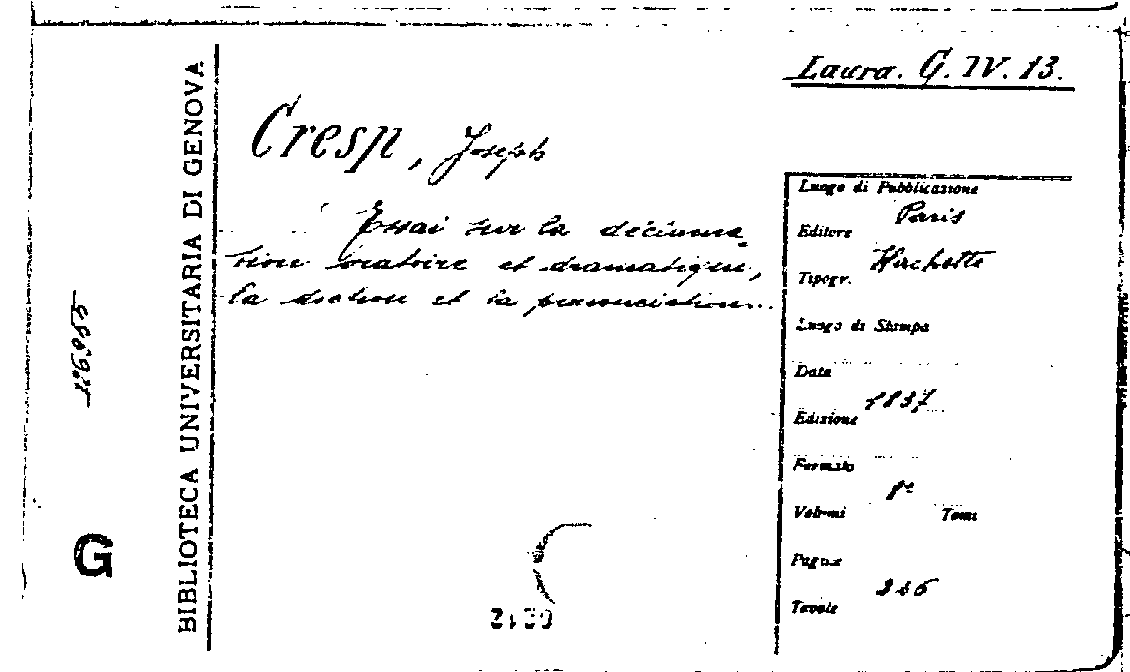 Laura. G. IV. 13.
Cresp, Joseph
Essai sur la déclama-
tion oratoire et dramatique,
la diction et la prononciation...
Luogo di Pubblicazione
Paris
Editore
Hachette
Tipogr.
Luogo di Stampa
Data
1837
Edizione
Formato
8°
Volumi Tomi
Pagine
Tavole
BIBLIOTECA UNIVERSITARIA DI GENOVA
G